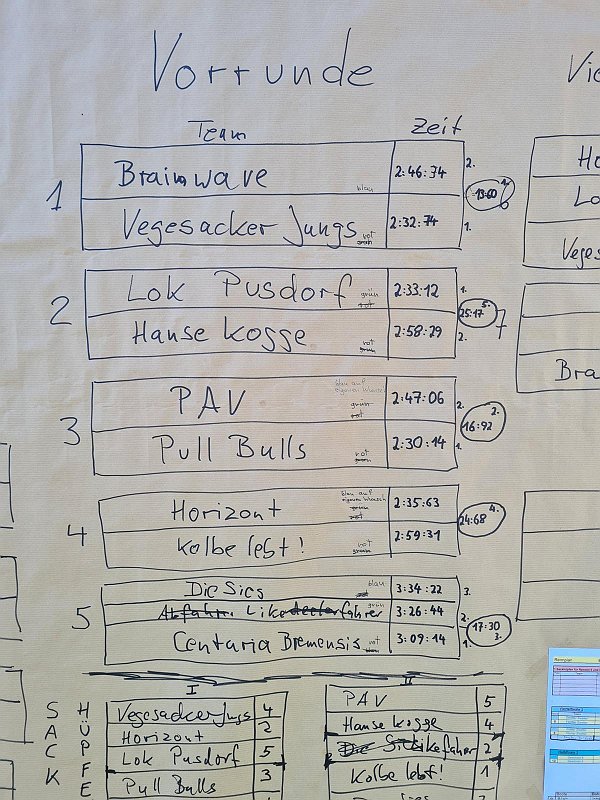 Vorrunde
Team Zeit
1
Brainwave blau 2:46:34 2.
Vegesacker Jungs rot grün 2:32:74 1.
13:60 1.
2
Lok Pusdorf grün rot 2:33:12 1.
Hanse Kogge rot grün 2:58:29 2.
25:17 5.
3
PAV blau auf eigenen Wunsch grün rot 2:47:06 2.
Pull Bulls rot grün 2:30:14 1.
16:92 2.
4
Horizont blau auf eigenen Wunsch grün 2:35:63
Kolbe lebt! rot grün 2:59:31
24:68 4.
5
Die Sies blau 3:34:22 3.
Likefahrer grün 3:26:44 2.
Centaria Bremensis rot 3:09:14 1.
17:30 3.
I
SACK HÜPFE
Vegesacker Jungs 4
Horizont 2
Lok Pusdorf 5
Pull Bulls 3
II
PAV 5
Hanse Kogge 4
Likefahrer 2
Kolbe lebt! 1
Vie
Ho
Lo
Veges
7
Bra